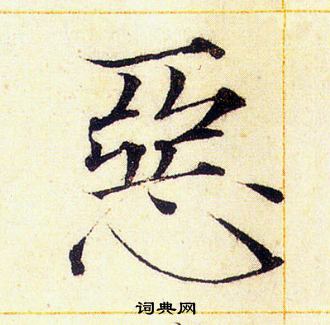 惡
词典网